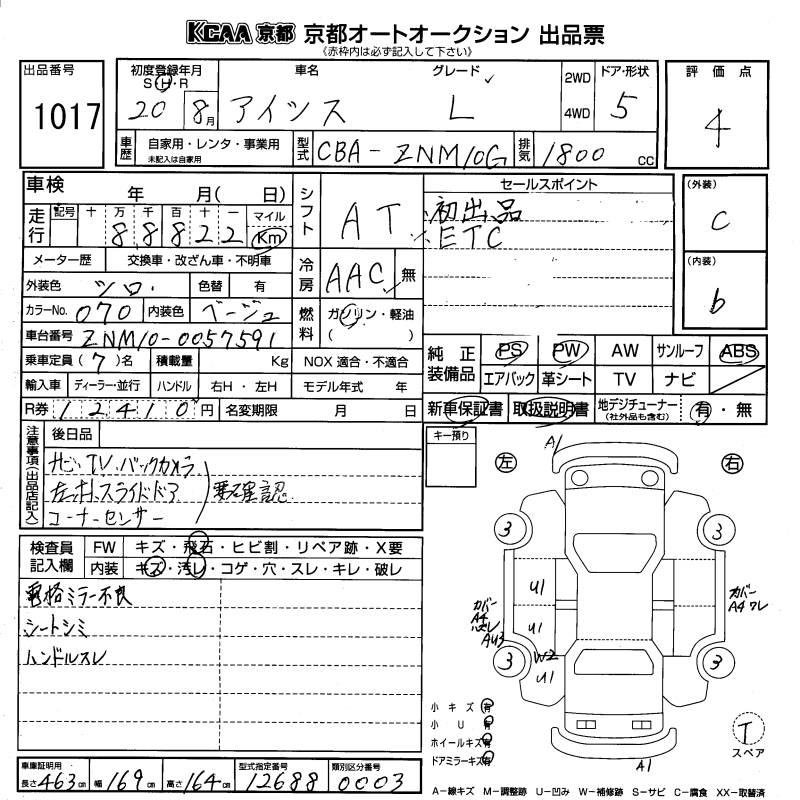 KCAA 京都 京都オートオークション 出品票
《赤枠内は必ず記入して下さい》
出品番号
1017
初度登録年月
S・H・R
20 8月
車名
アイシス
グレード
L
2WD
4WD
ドア・形状
5
評価点
4
車歴 自家用・レンタ・事業用
未記入は自家用
型式 CBA-ZNM10G
排気 1800 cc
車検 年 月( 日)
走行 記号 十 万 千 百 十 一 マイル
88822 Km
シフト AT
セールスポイント
初出品
ETC
(外装)
C
(内装)
b
メーター歴 交換車・改ざん車・不明車
外装色 シロ 色替 有
冷房 AAC 無
カラーNo. 070 内装色 ベージュ
燃料 ガソリン・軽油
( )
車台番号 ZNM10-0057591
乗車定員 (7)名 積載量 Kg NOX 適合・不適合
輸入車 ディーラー・並行 ハンドル 右H・左H モデル年式 年
R券 12410円 名変期限 月 日
純正装備品 PS PW AW サンルーフ ABS
エアバック 革シート TV ナビ
新車保証書 取扱説明書 地デジチューナー(社外品も含む) 有・無
注意事項(出品店記入)
後日品
ナビ・TV・バックカメラ
左右スライドドア
コーナーセンサー
要確認
キー預り
検査員記入欄 FW キズ・飛石・ヒビ割・リペア跡・X要
内装 キズ・汚レ・コゲ・穴・スレ・キレ・破レ
電格ミラー不良
シートシミ
ハンドルスレ
左 右
A1
3 3
U1
U1
カバー
A4
ハズレ
AU3
カバー
A4ワレ
3 3
W2
U1
A1
小キズ 有
小U 有
ホイールキズ 有
ドアミラーキズ 有
T
スペア
車庫証明用
長さ463cm 幅169cm 高さ164cm
型式指定番号 12688
類別区分番号 0003
A-線キズ M-調整跡 U-凹み W-補修跡 S-サビ C-腐食 XX-取替済